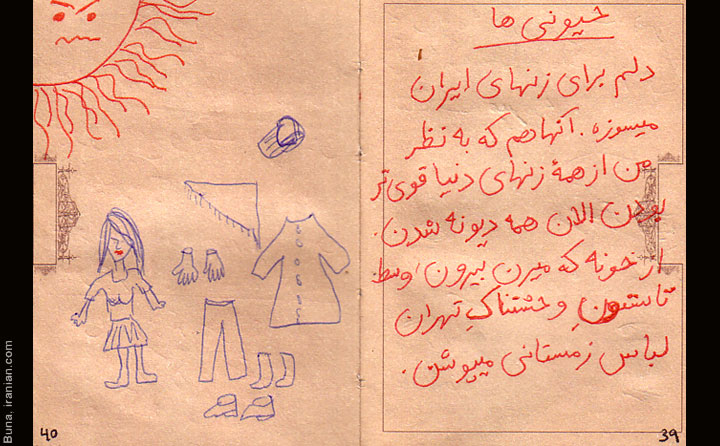 حیونی ها
دلم برای زنهای ایران
میسوزه. آنهاهم که به نظر
من از همهٔ زنهای دنیا قوی‌تر
بودن الان همه دیونه شدن.
از خونه که میرن بیرون، وسط
تابستونِ وحشتناکِ تهران
لباس زمستانی میپوشن.
39
40
Buna, iranian.com